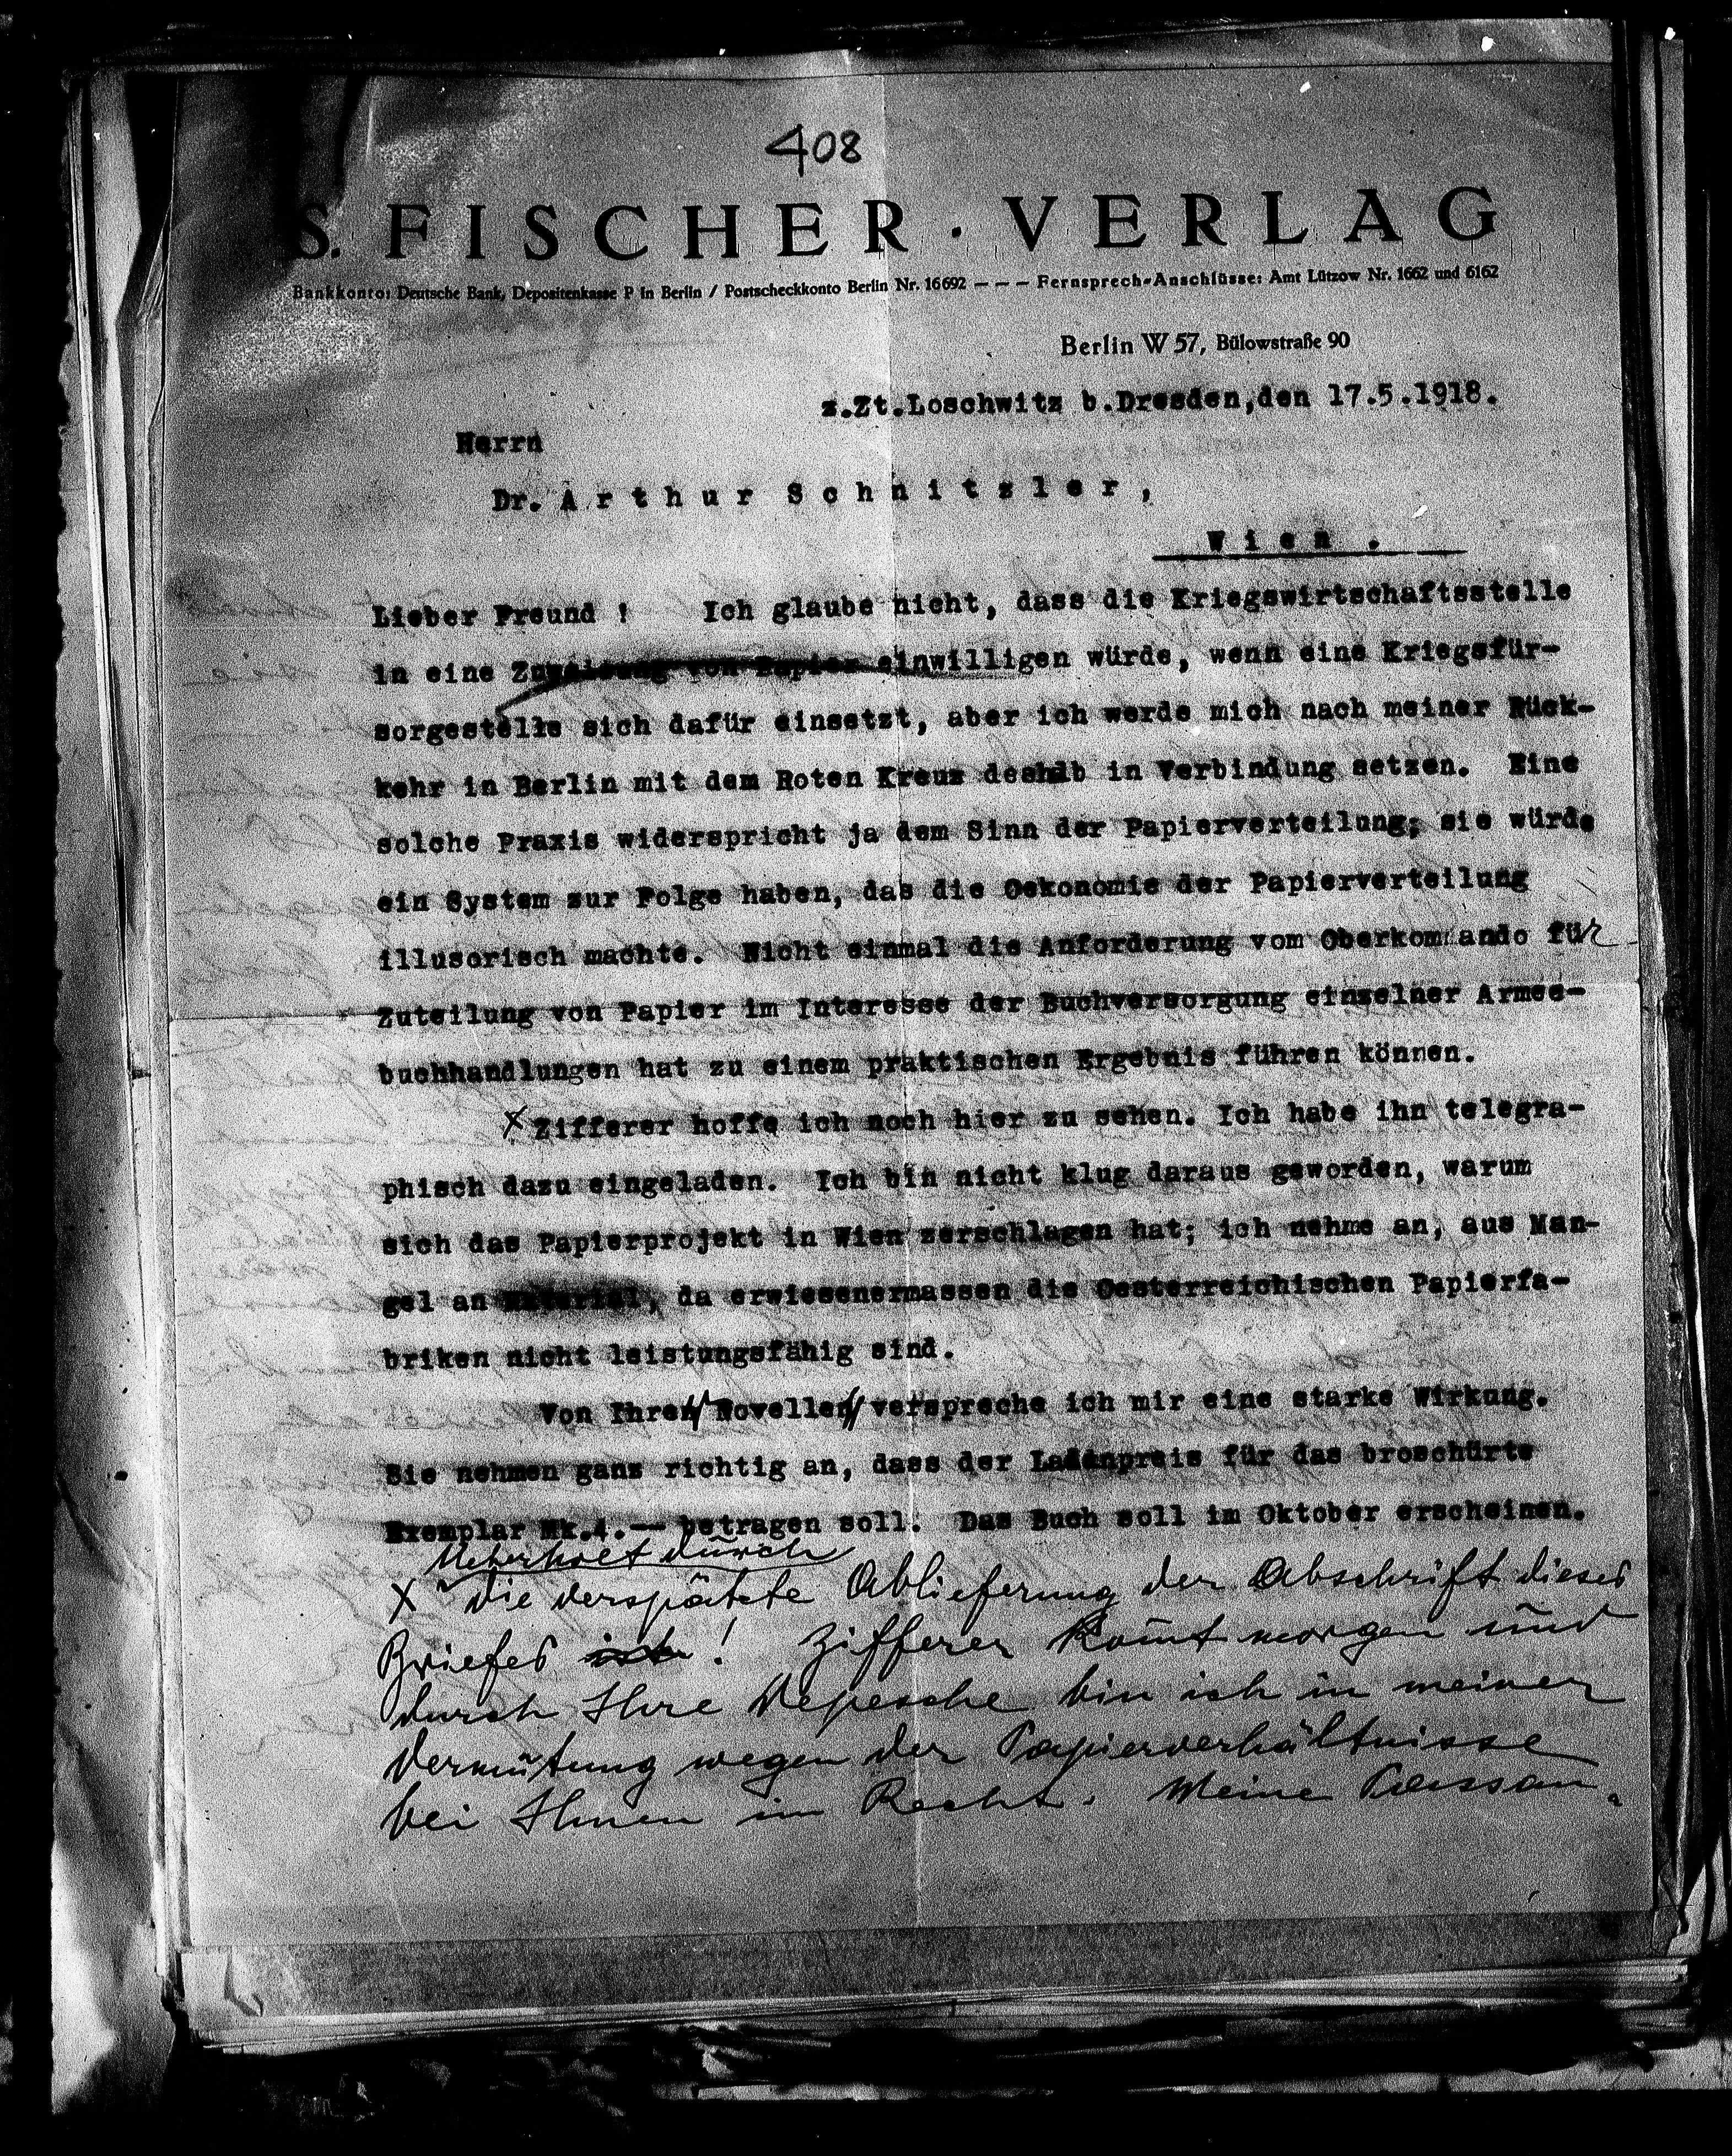 408
S. FISCHER · VERLAG
Bankkonto: Deutsche Bank, Depositenkasse P in Berlin / Postscheckkonto Berlin Nr. 16692 — — — Fernsprech-Anschlüsse: Amt Lützow Nr. 1662 und 6162
Berlin W 57, Bülowstraße 90
z.Zt.Loschwitz b.Dresden,den 17.5.1918.
Herrn
Dr. Arthur Schnitzler,
Wien.
Lieber Freund ! Ich glaube nicht, dass die Kriegswirtschaftsstelle
in eine Zuweisung von Papier einwilligen würde, wenn eine Kriegsfür-
sorgestelle sich dafür einsetzt, aber ich werde mich nach meiner Rück-
kehr in Berlin mit dem Roten Kreuz deshlb in Verbindung setzen. Eine
solche Praxis widerspricht ja dem Sinn der Papierverteilung; sie würde
ein System zur Folge haben, das die Oekonomie der Papierverteilung
illusorisch machte. Nicht einmal die Anforderung vom Oberkommando für
Zuteilung von Papier im Interesse der Buchversorgung einzelner Armee-
buchhandlungen hat zu einem praktischen Ergebnis führen können.
x Zifferer hoffe ich noch hier zu sehen. Ich habe ihn telegra-
phisch dazu eingeladen. Ich bin nicht klug daraus geworden, warum
sich das Papierprojekt in Wien zerschlagen hat; ich nehme an, aus Man-
gel an Material, da erwiesenermassen die Oesterreichischen Papierfa-
briken nicht leistungsfähig sind.
Von Ihren Novellen verspreche ich mir eine starke Wirkung.
Sie nehmen ganz richtig an, dass der Ladenpreis für das broschürte
Exemplar Mk.4.— betragen soll. Das Buch soll im Oktober erscheinen.
Ueberholt durch
x die verspätete Ablieferung der Abschrift dieses
Briefes ist! Zifferer komt morgen und
durch Ihre Depesche bin ich in meiner
Vermutung wegen der Papierverhältnisse
bei Ihnen im Recht. Meine